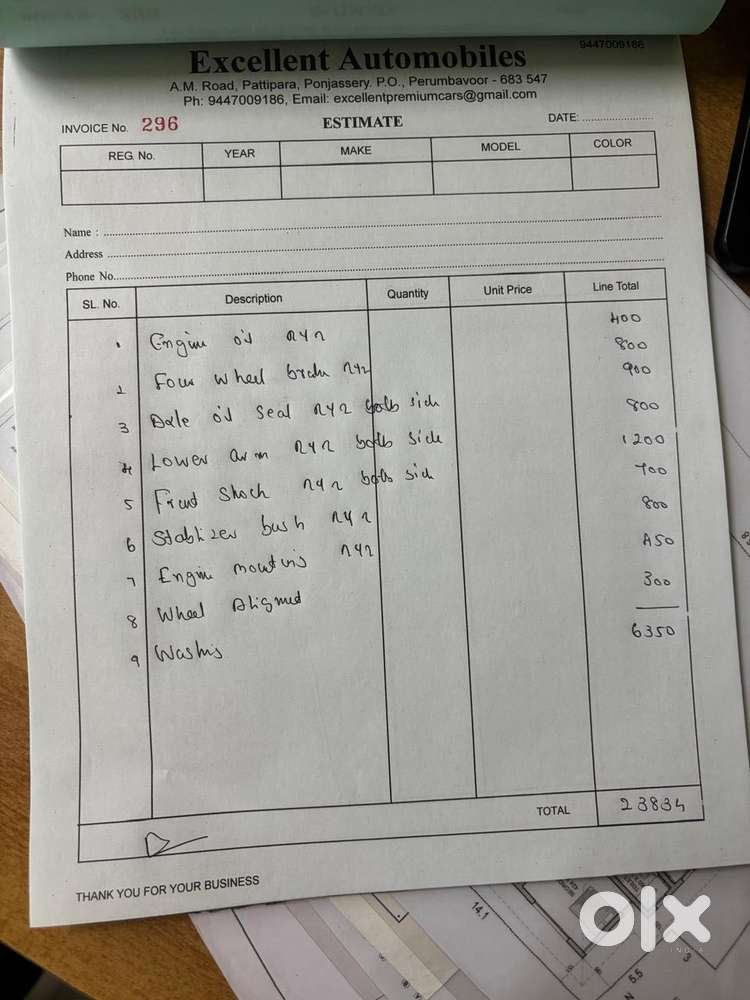 Excellent Automobiles
9447009186
A.M. Road, Pattipara, Ponjassery. P.O., Perumbavoor - 683 547
Ph: 9447009186, Email: excellentpremiumcars@gmail.com
INVOICE No. 296
ESTIMATE
DATE: ........................
REG. No. YEAR MAKE MODEL COLOR
Name :
Address
Phone No.
SL. No. Description Quantity Unit Price Line Total
1 Engine oil r4r 400
2 Four wheel brake r4r 800
3 Axle oil seal r4r both side 900
4 Lower arm r4r both side 800
5 Front Shock r4r both side 1200
6 Stablizer bush r4r 700
7 Engine mountins r4r 800
8 Wheel Alignmed 450
9 Washis 300
6350
TOTAL 23834
THANK YOU FOR YOUR BUSINESS
14.1
5.5
olx
INDIA